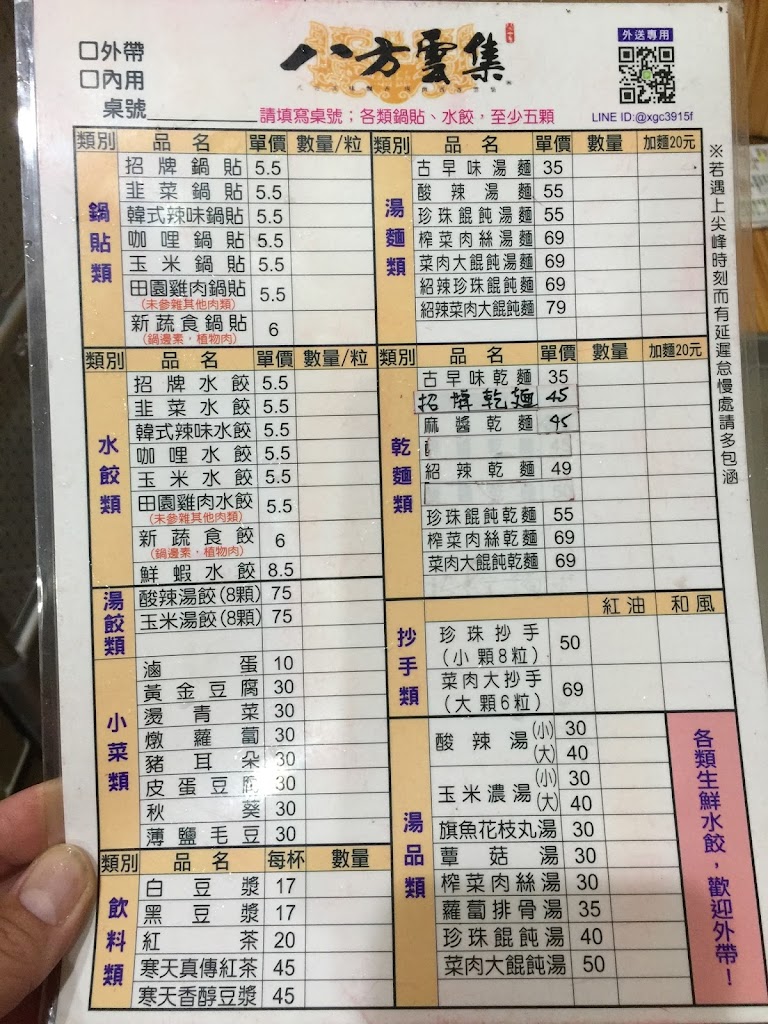 □外帶
□內用
桌號
八方雲集
外送專用
LINE ID:@xgc3915f
請填寫桌號；各類鍋貼、水餃，至少五顆
類別 品名 單價 數量/粒
鍋貼類
招牌鍋貼 5.5
韭菜鍋貼 5.5
韓式辣味鍋貼 5.5
咖哩鍋貼 5.5
玉米鍋貼 5.5
田園雞肉鍋貼 5.5
(未參雜其他肉類)
新蔬食鍋貼 6
(鍋邊素，植物肉)
類別 品名 單價 數量/粒
水餃類
招牌水餃 5.5
韭菜水餃 5.5
韓式辣味水餃 5.5
咖哩水餃 5.5
玉米水餃 5.5
田園雞肉水餃 5.5
(未參雜其他肉類)
新蔬食餃 6
(鍋邊素，植物肉)
鮮蝦水餃 8.5
湯餃類
酸辣湯餃(8顆) 75
玉米湯餃(8顆) 75
小菜類
滷蛋 10
黃金豆腐 30
燙青菜 30
燉蘿蔔 30
豬耳朵 30
皮蛋豆腐 30
秋葵 30
薄鹽毛豆 30
類別 品名 每杯 數量
飲料類
白豆漿 17
黑豆漿 17
紅茶 20
寒天真傳紅茶 45
寒天香醇豆漿 45
類別 品名 單價 數量 加麵20元
湯麵類
古早味湯麵 35
酸辣湯麵 55
珍珠餛飩湯麵 55
榨菜肉絲湯麵 69
菜肉大餛飩湯麵 69
紹辣珍珠餛飩麵 69
紹辣菜肉大餛飩麵 79
類別 品名 單價 數量 加麵20元
乾麵類
古早味乾麵 35
招牌乾麵 45
麻醬乾麵 45
紹辣乾麵 49
珍珠餛飩乾麵 55
榨菜肉絲乾麵 69
菜肉大餛飩乾麵 69
紅油 和風
抄手類
珍珠抄手 50
(小顆8粒)
菜肉大抄手 69
(大顆6粒)
湯品類
酸辣湯 (小) 30
(大) 40
玉米濃湯 (小) 30
(大) 40
旗魚花枝丸湯 30
蕈菇湯 30
榨菜肉絲湯 30
蘿蔔排骨湯 35
珍珠餛飩湯 40
菜肉大餛飩湯 50
各類生鮮水餃，歡迎外帶！
※若遇上尖峰時刻而有延遲怠慢處請多包涵